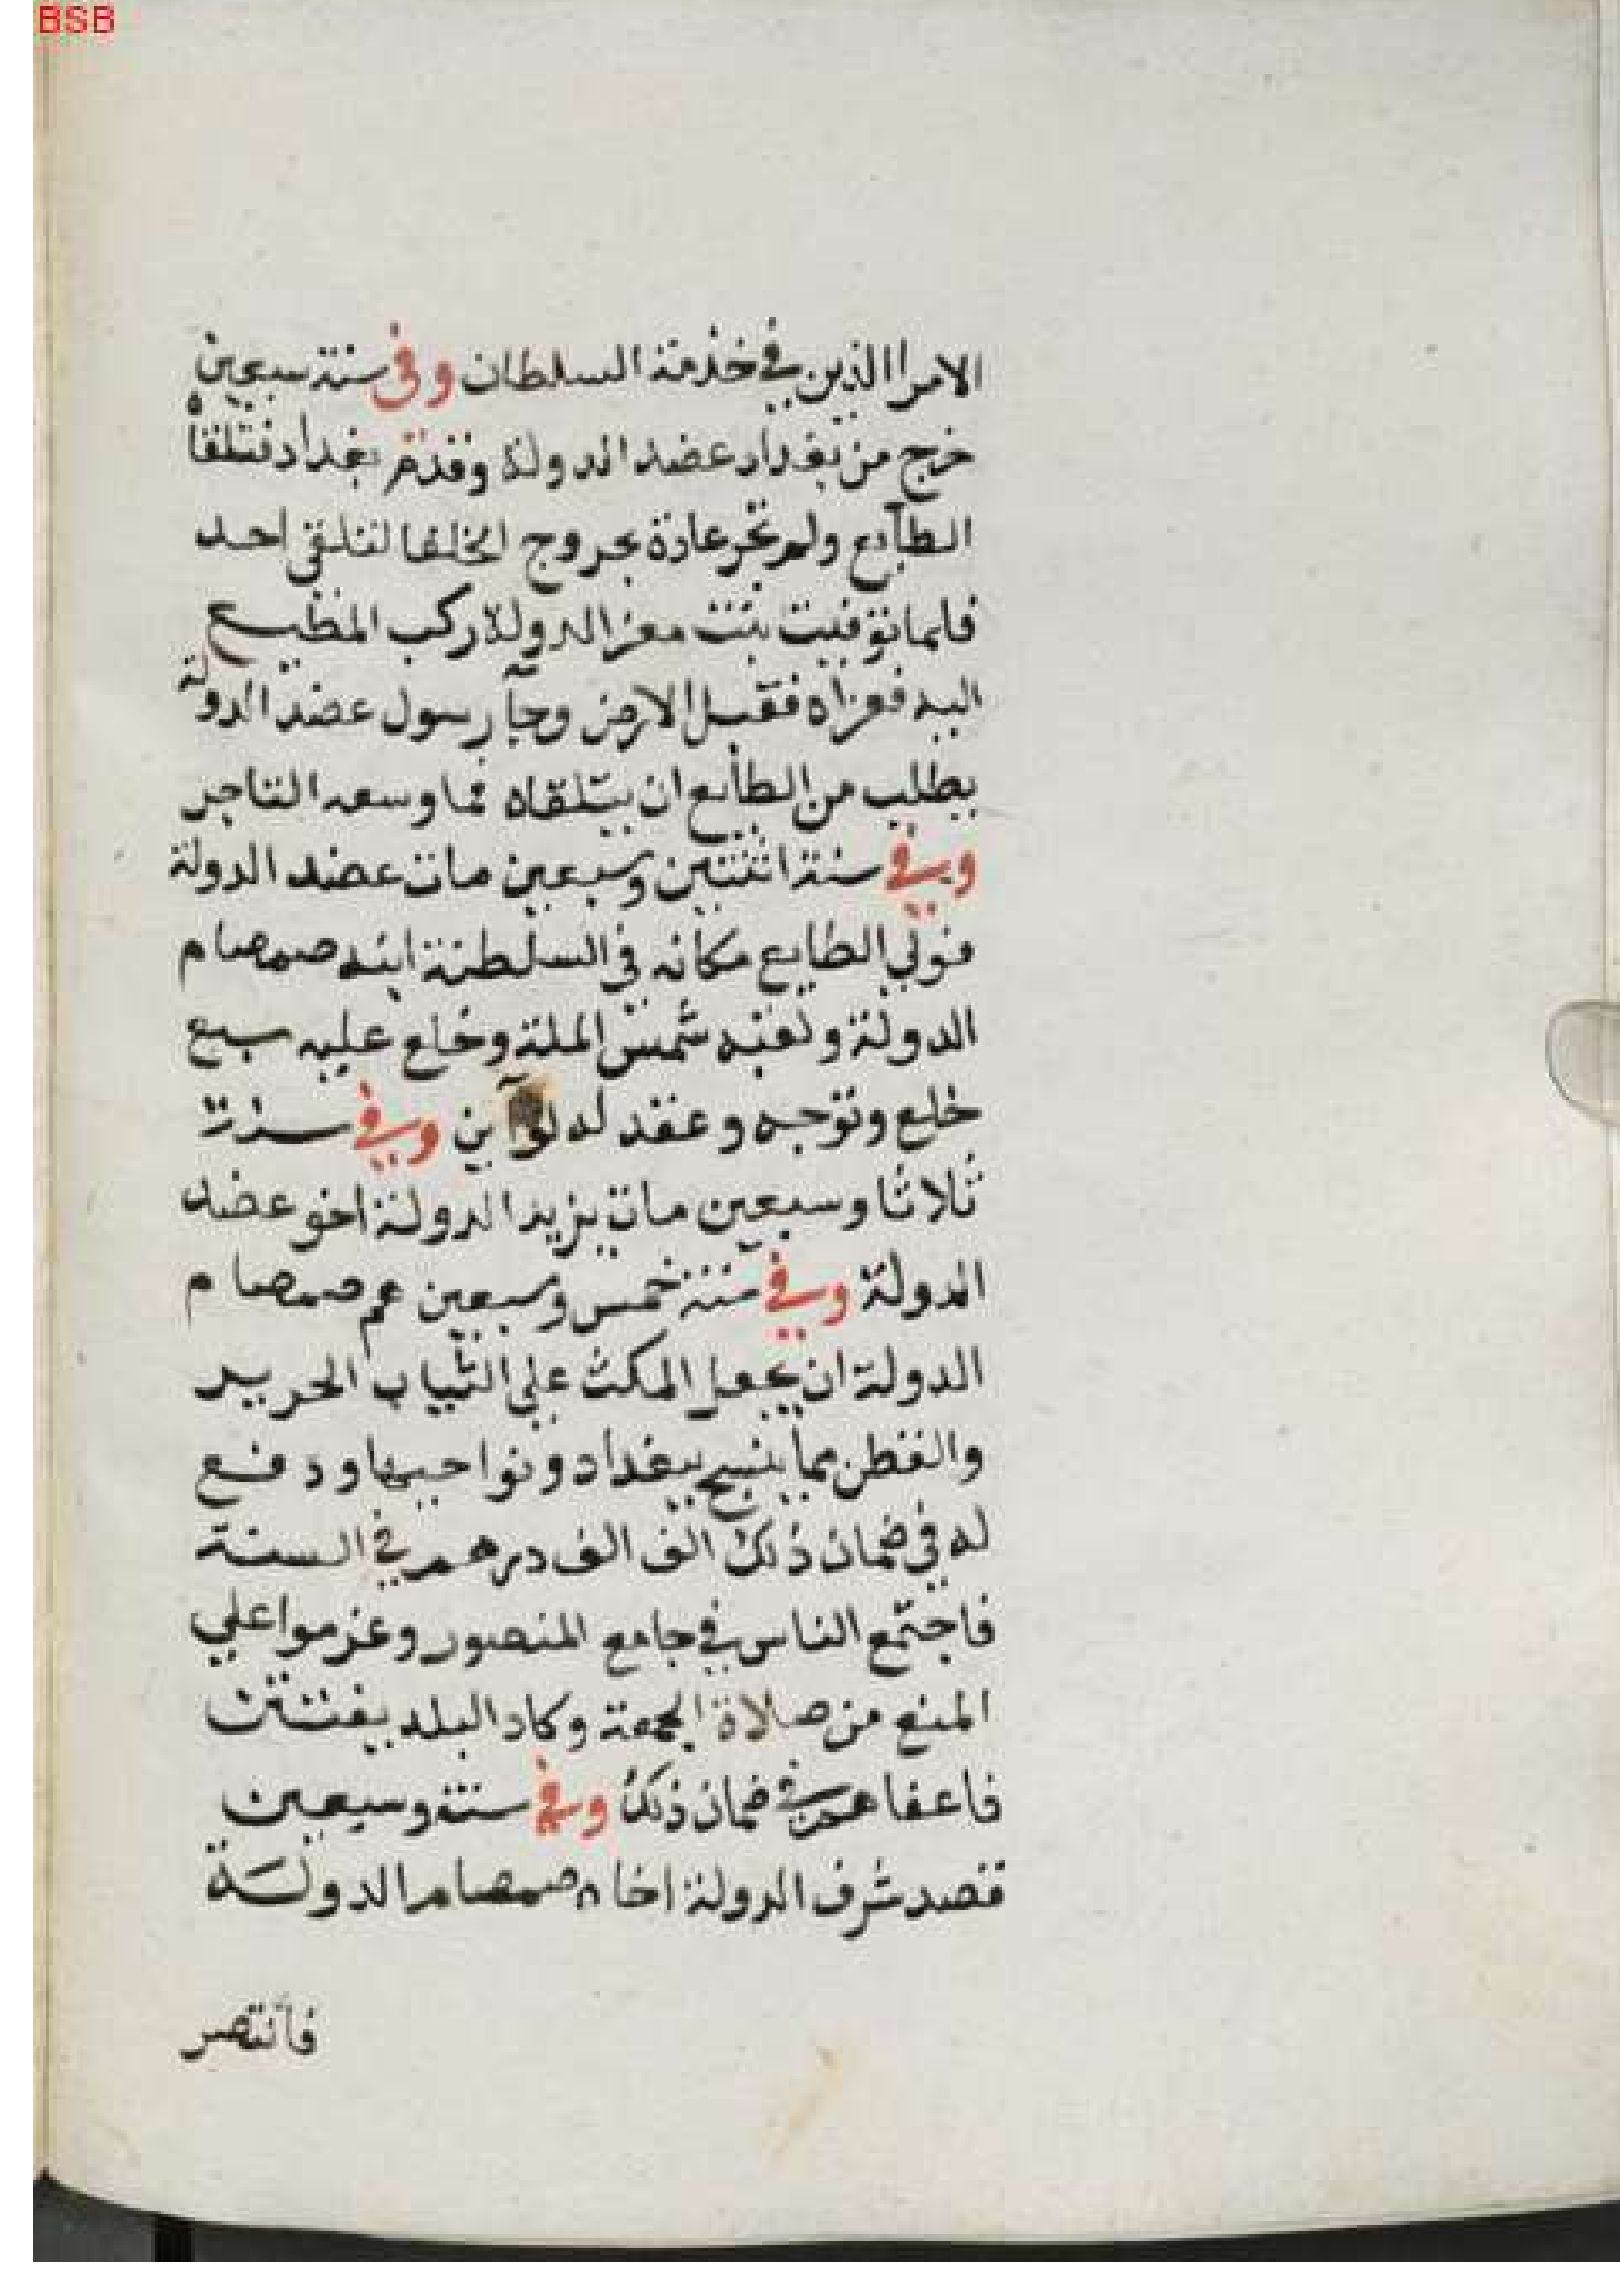 BSB
الامرا الذين في خذمة السلطان وفى سنة سبعين
خرج من بغداد عضد الدولة وقدم بغداد فتلقاه
الطآيع ولم تجر عادة بخروج الخلفا لتلقي احد
فلما توفيت بنت معز الدولة ركب المطيع
اليه فعزاه فقبل الارض وجآ رسول عضد الدولة
يطلب من الطايع ان يتلقاه مما وسعه التاخر
وفي سنة اثنتين وسبعين مات عضد الدولة
فولي الطايع مكانه في السلطنة ابنه صمصام
الدولة ولقبه شمس الملة وخلع عليه سبع
خلع وتوجه وعقد له لوآين وفي سنة
ثلاثا وسبعين مات يزيد الدولة اخو عضد
الدولة وفي سنة خمس وسبعين عم صمصام
الدولة ان يجعل المكث علي الثياب الحرير
والقطن مما ينسج ببغداد ونواحيها ودفع
له في ضمان ذلك الف الف درهم في السنة
فاجتمع الناس في جامع المنصور وعزموا علي
المنع من صلاة الجمعة وكاد البلد يفتتن
فاعفاهم في ضمان ذلك وفي ستة وسبعين
قصد شرف الدولة اخاه صمصام الدولة
فانتصر